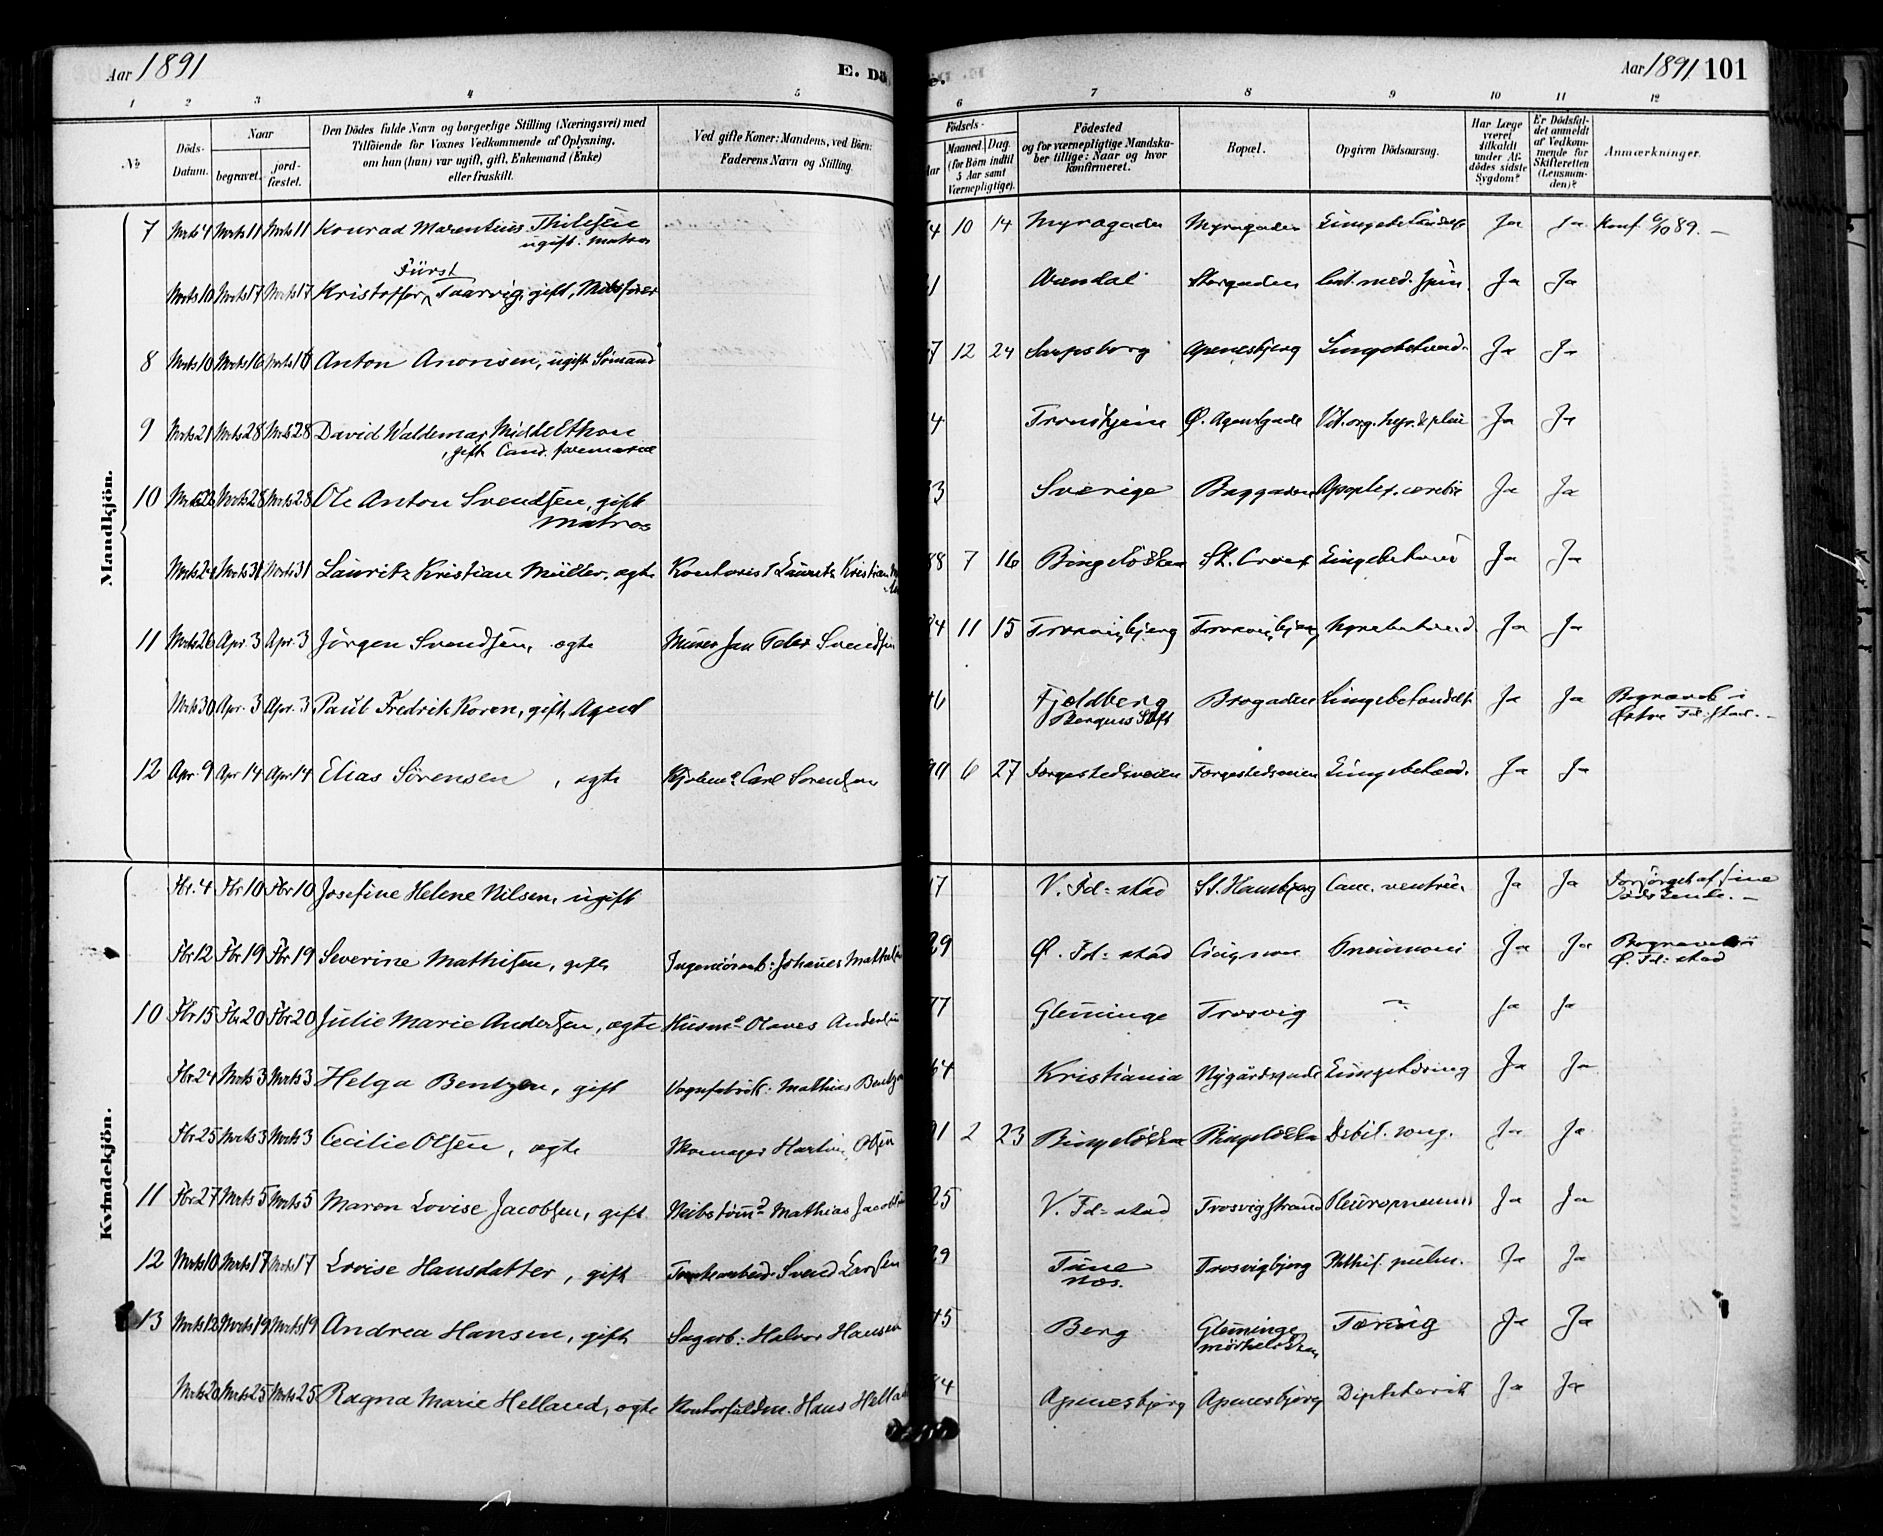 Aar 1891
E. Dö
e.
Aar 1891 101
1 2 3 4 5 6 7 8 9 10 11 12
No
Döds-
Datum.
Naar
begravet.
jord-
fæstet.
Den Dödes fulde Navn og borgerlige Stilling (Næringsvei) med
Tilföiende for Voxnes Vedkommende af Oplysning,
om han (hun) var ugift, gift, Enkemand (Enke)
eller fraskilt.
Ved gifte Koner: Mandens, ved Börn:
Faderens Navn og Stilling.
Födsels-
Aar
Maaned. Dag.
(for Börn indtil
5 Aar samt
Værnepligtige).
Födested
og for værnepligtige Mandska-
ber tillige: Naar og hvor
konfirmeret.
Bopæl.
Opgiven Dödsaarsag.
Har Læge
været
tilkaldt
under Af-
dödes sidste
Sygdom?
Er Dödsfal-
det anmeldt
af Vedkom-
mende for
Skifteretten
(Lensman-
den)?
Anmærkninger.
Mandkjön.
7 Mrts 4 Mrts 11 Mrts 11 Konrad Marentius Thilesen 4 10 14 Myragaden Myragaden Ja Ja Konf. 6/10 89.
ugift. matros
Fürst
Mrts 10 Mrts 17 Mrts 17 Kristoffer Taarvig, gift, 1 Arendal Storgaden Ja Ja
8 Mrts 10 Mrts 16 Mrts 16 Anton Anonsen, ugift Sömand 7 12 24 Sarpsborg Apenesbjerg Lungebetænd. Ja Ja
9 Mrts 21 Mrts 28 Mrts 28 David Waldemar Middelthon 4 Trondhjem Ø. Ja Ja
, gift Cand.
10 Mrts 28 Mrts 28 Ole Anton Svendsen, gift 3 Sverige Baggaden Apoplex. cerebri Ja Ja
matros
Mrts 24 Mrts 31 Mrts 31 Lauritz Kristian Müller, ægte Kontorist Lauritz Kristian 88 7 16 Bingeløkken St. Croix Lungebetænd Ja Ja
11 Mrts 26 Apr. 3 Apr. 3 Jörgen Svendsen, ægte Murer Jan Peder Svendsen 4 11 15 Trosvigbjerg Trosvigbjerg Ja Ja
Mrts 30 Apr. 3 Apr. 3 Paul Fredrik Koren, gift, Agent 46 Fjeldberg Brogaden Lungebetændelse Ja Ja Begravet i
Bergens Stift Østre Fd:stad.
12 Apr. 9 Apr 14 Apr 14 Elias Sörensen, ægte Carl Sörensen 90 6 27 Færgestedsveien Færgestedsveien Lungebetænd. Ja Ja
Kvindekjön.
Fbr. 4 Fbr 10 Fbr 10 Josefine Helene Nilsen, ugift 7 V. Fd:stad St. Hansbjerg Canc. ventric. Ja Ja Forsörget af sine
Sødskende.
Fbr 12 Fbr 19 Fbr 19 Severine Mathisen, gift Johanes Mathisen 29 Ø. Fd:stad Cicignon Pneumoni Ja Ja Begravet i
Ø. Fd:stad
10 Fbr 15 Fbr 20 Fbr 20 Julie Marie Andersen, ægte Husmd Olaves Andersen 77 Glemminge Trosvig Ja Ja
Fbr 24 Mrts 3 Mrts 3 Helga Bentzen, gift Vognfabrik. Mathias Bentzen 64 Kristiania Nygårdsgade Ja Ja
Fbr 25 Mrts 3 Mrts 3 Cecilie Olsen, ægte Skomager Martin Olsen 91 2 23 Bingeløkken Bingeløkken Debil. cong. Ja Ja
11 Fbr 27 Mrts 5 Mrts 5 Maren Lovise Jacobsen, gift Mathias Jacobsen 25 V. Fd:stad Trosvigstrand Pleuropneumoni Ja Ja
12 Mrts 10 Mrts 17 Mrts 17 Lovise Hansdatter, gift Svend Larsen 29 Tune Trosvigbjerg Phthis. pulm. Ja Ja
Næs.
13 Mrts 12 Mrts 19 Mrts 19 Andrea Hansen, gift Sagarb. Halvor Hansen 45 Berg Glemminge Tæring Ja Ja
Mrts 20 Mrts 25 Mrts 25 Ragna Marie Helland, ægte Kontorfuldm. Hans Helland 84 Apenesbjerg Apenesbjerg Diphtherit Ja Ja